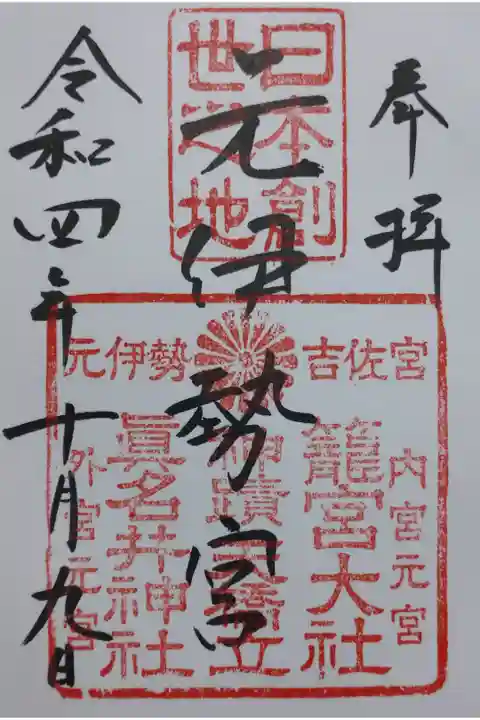 奉拝
日本創
世之地
元伊勢宮
吉佐宮
元伊勢
内宮元宮
籠宮大社
神蹟天橋立
眞名井神社
外宮元宮
令和四年十月九日